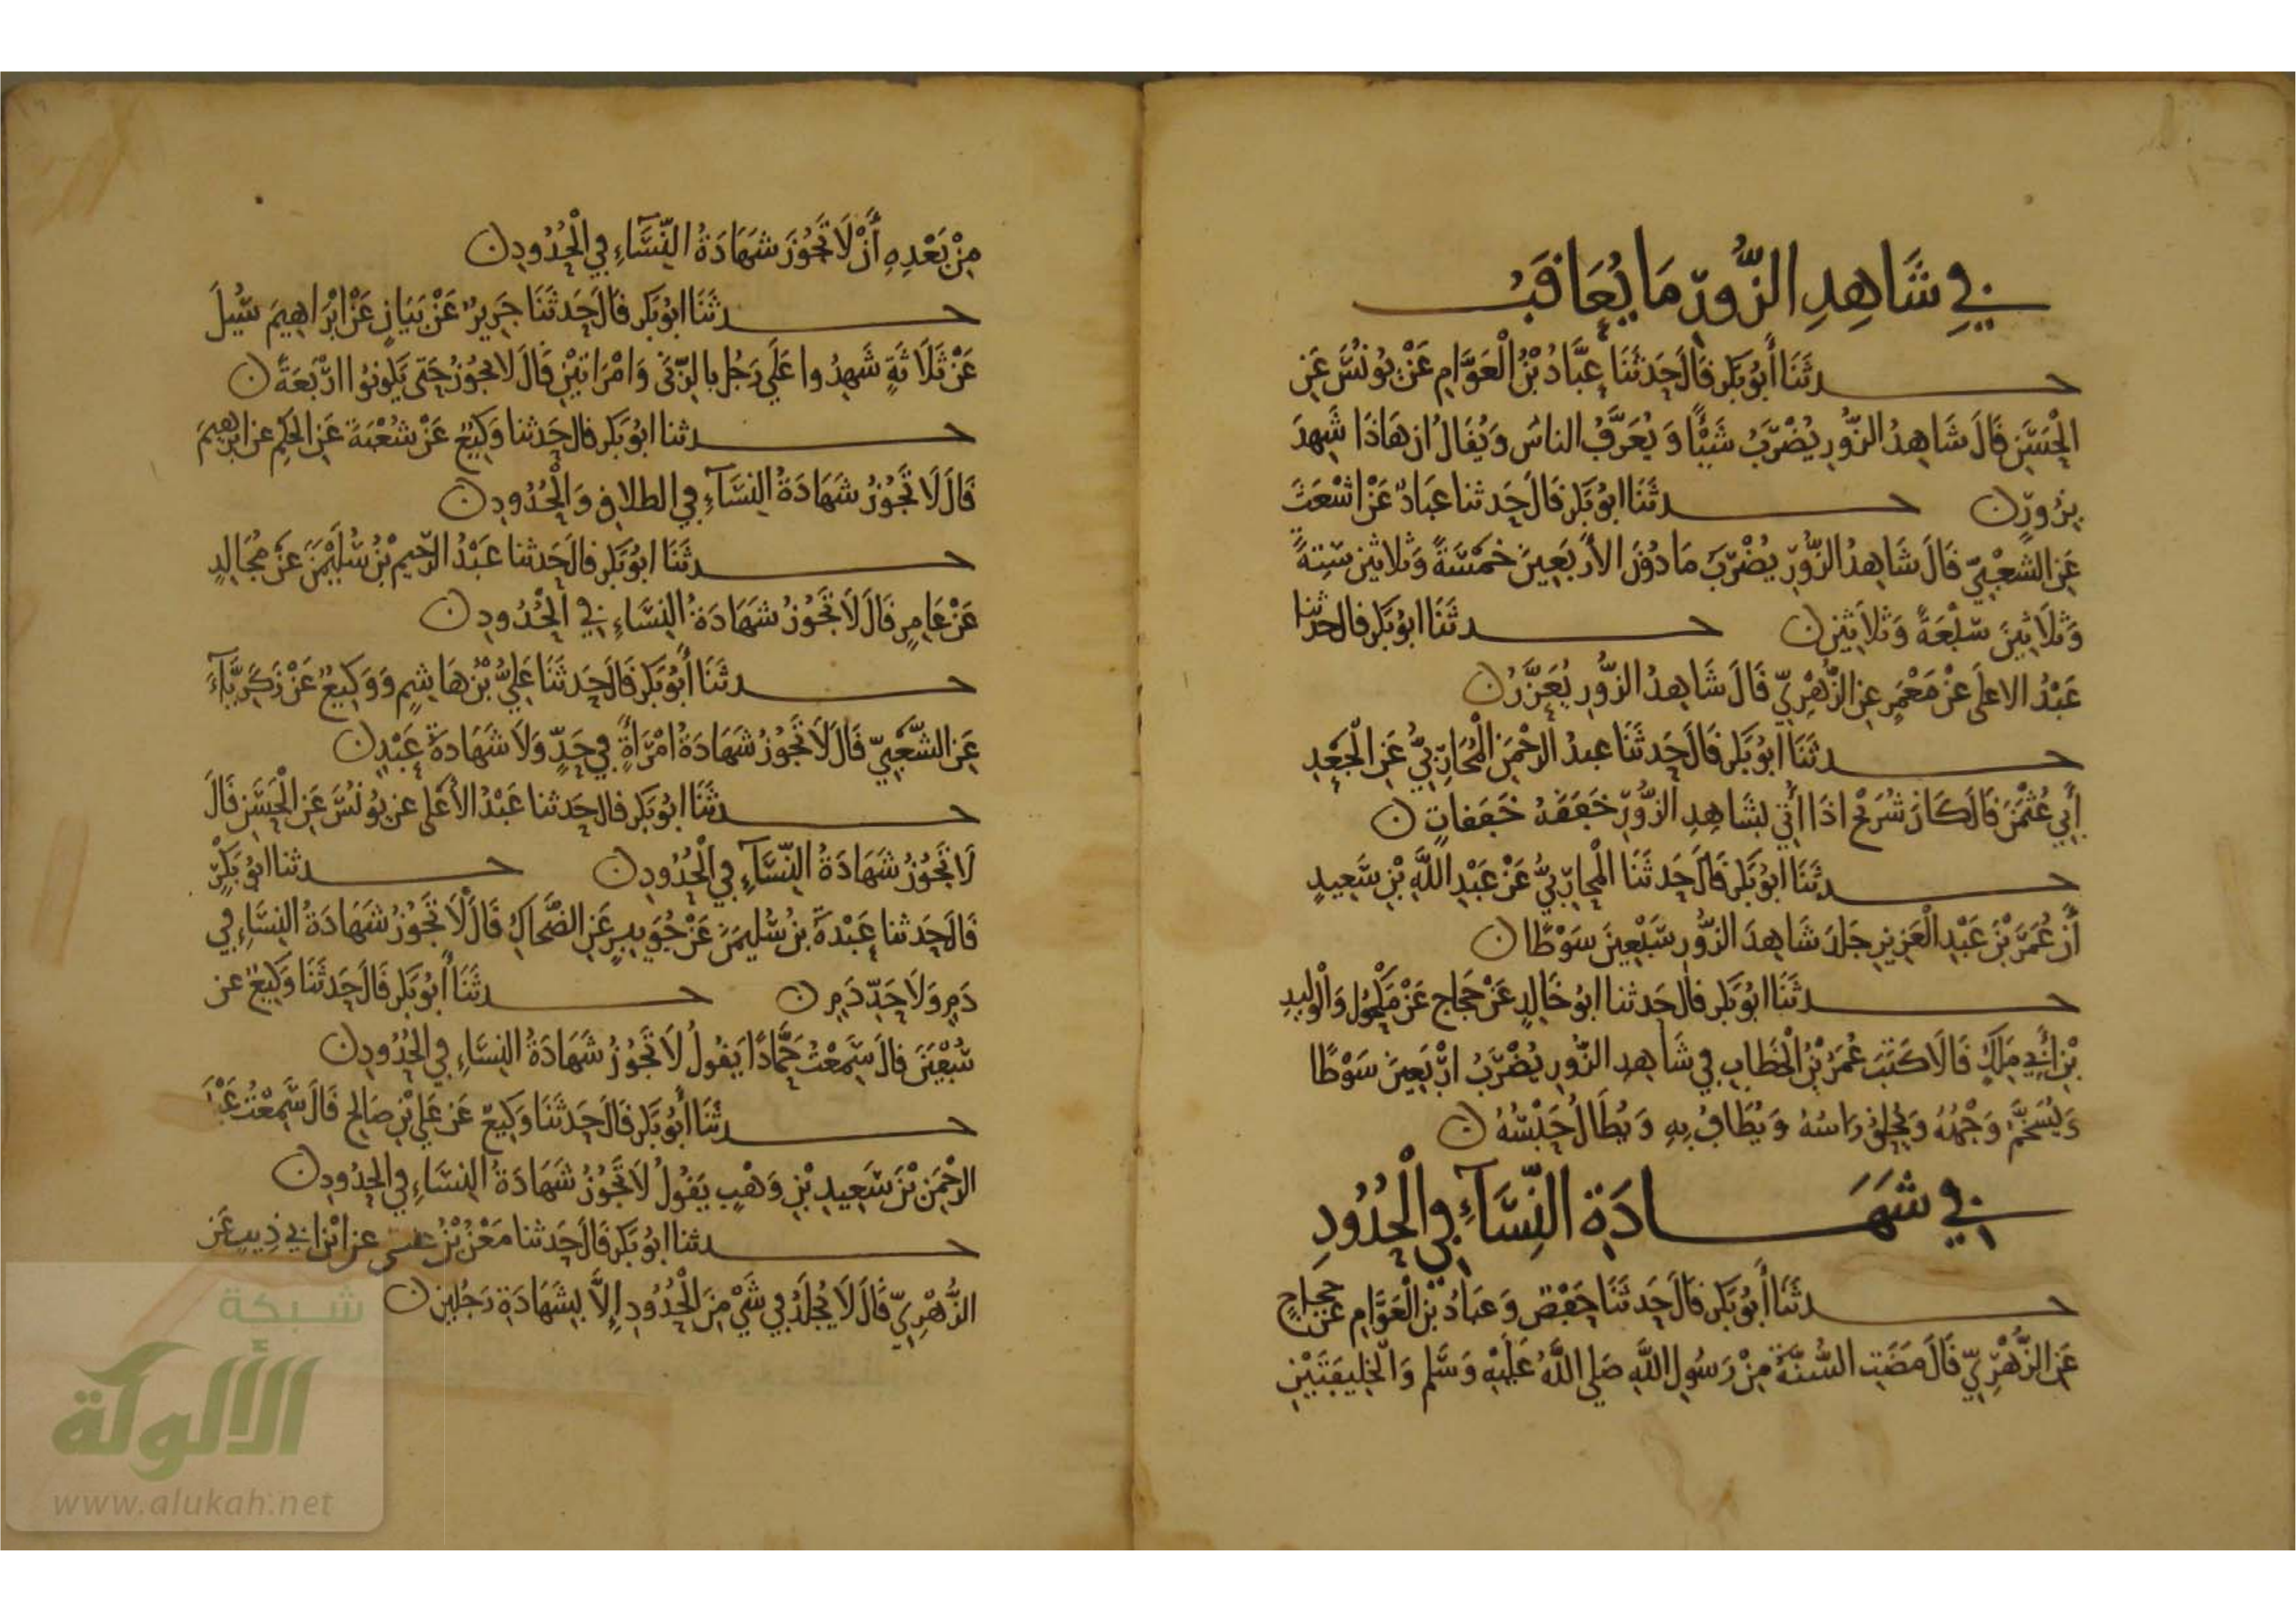 في شَاهِدِ الزُّورِ مَا يُعَاقَبُ
حدثَنَا أَبُو بَكر قَالَ حَدثَنَا عَبَّادُ بْنُ الْعَوَّامِ عَنْ يُونُسَ عَنِ
الْحَسَنِ قَالَ شَاهِدُ الزُّورِ يُضْرَبُ شَيْئًا وَيُعَرَّفُ الناسُ وَيُقَالُ ان هَاذَا شَهِدَ
بِزُورٍ ن حدثَنَا ابُو بَكر قَالَ حَدثنا عَبادٌ عَنْ اشْعَثَ
عَنِ الشعْبِيِّ قَالَ شَاهِدُ الزُّورِ يُضْرَبُ مَا دُونَ الأَرْبَعِينَ خَمْسَةً وَثلاثين سِتةً
وَثَلَاثِينَ سَبْعَةً وَثَلاثِين ن حدثَنَا ابُو بَكر قال حدثنا
عَبْدُ الاعلَى عَنْ مَعْمَرٍ عَنِ الزُّهْرِيِّ قَالَ شَاهِدُ الزُّورِ يُعَزَّرُ ن
حدثَنَا ابُو بَكر قَالَ حَدثَنَا عبدُ الرَّحْمَنِ الْمُحَارِبِيُّ عَنِ الْجَعْدِ
أَبِي عُثْمَنَ قَالَ كَانَ شُرَيْحٌ اذَا اتي بشَاهِدِ الزُّورِ خَفَقَهُ خَفَقَاتٍ ن
حدثَنَا ابُو بَكر قَالَ حَدثَنَا الْمُحارِبيُّ عَنْ عَبْدِ اللَّهِ بْنِ سَعِيدٍ
أَنَّ عُمَرَ بْنَ عَبْدِ الْعَزِيزِ جَلدَ شَاهِدَ الزُّورِ سَبْعِينَ سَوْطًا ن
حدثَنَا ابُو بَكر قال حَدثنا ابُو خَالِدٍ عَنْ حَجاجٍ عَنْ مَكْحُولٍ وَالْوَلِيدِ
بْنِ أَبِي مَلكٍ قَالَا كَتَبَ عُمَرُ بْنُ الْخَطابِ فِي شَاهِدِ الزُّورِ يُضْرَبُ ارْبَعِينَ سَوْطًا
وَيُسَخَّمُ وَجْهُهُ وَيُحْلَقُ رَاسُهُ وَيُطَافُ بِهِ وَيُطَالُ حَبْسُهُ ن
في شَهَادَةِ النِّسَآءِ فِي الْحُدُودِ
حدثَنَا أَبُو بَكر قَالَ حَدثَنَا حَفْصٌ وَعَبادُ بْنُ الْعَوَّامِ عَنْ حَجاجٍ
عَنِ الزُّهْرِيِّ قَالَ مَضَتِ السُّنَّةُ مِنْ رَسُولِ اللَّهِ صَلى اللَّهُ عَلَيْهِ وَسَلم وَالْخَلِيفَتَيْنِ
مِنْ بَعْدِهِ أَنْ لَا تَجُوزَ شَهَادَةُ النِّسَاءِ فِي الْحُدُودِ ن
حدثَنَا ابُو بَكر قَالَ حَدثَنَا جَرِيرٌ عَنْ بَيَانٍ عَنْ ابْرَاهِيمَ سُيِلَ
عَنْ ثَلَاثَةٍ شَهِدُوا عَلَى رَجُلٍ بالزِّنَى وَامْرَاتَيْنِ قَالَ لا يجُوزُ حَتى يَكُونُوا ارْبَعَةً ن
حدثنا ابُو بَكر قال حَدثنا وَكِيعٌ عَنْ شُعْبَةَ عَنِ الحَكَمِ عن ابرهيمَ
قَالَ لَا تَجُوزُ شَهَادَةُ النِّسَآءِ فِي الطلاقِ وَالْحُدُودِ ن
حدثَنَا ابُو بَكر قال حَدثنا عَبْدُ الرَّحِيمِ بْنُ سُلَيْمَنَ عَنْ مُجَالِدٍ
عَنْ عَامِرٍ قَالَ لَا تَجُوزُ شَهَادَةُ النِّسَاءِ فِي الْحُدُودِ ن
حدثَنَا أَبُو بَكر قَالَ حَدثَنَا عَلِيُّ بْنُ هَاشِمٍ وَوَكِيعٌ عَنْ زَكَرِيَّآءَ
عَنِ الشَّعْبِيِّ قَالَ لَا تَجُوزُ شَهَادَةُ امْرَأَةٍ فِي حَدٍّ وَلَا شَهَادَةُ عَبْدٍ ن
حدثَنَا ابُو بَكر قال حَدثنا عَبْدُ الأَعْلى عن يُونُسَ عَنِ الْحَسَنِ قَالَ
لَا تَجُوزُ شَهَادَةُ النِّسَآءِ فِي الْحُدُودِ ن حدثنا ابُو بَكْرٍ
قَالَ حَدثنا عَبْدَةُ بنُ سُلَيمَنَ عَنْ جُوَيبِرٍ عَنِ الضَّحاكِ قَالَ لَا تَجُوزُ شَهَادَةُ النِّسَاءِ فِي
دَمٍ وَلَا حَدِّ دَمٍ ن حدثَنَا أَبُو بَكر قَالَ حَدثَنَا وَكِيعٌ عن
سُفْيَنَ قالَ سَمِعْتُ حَمَّادًا يَقُولُ لَا تَجُوزُ شَهَادَةُ النِّسَاءِ فِي الْحُدُودِ ن
حدثَنَا أَبُو بَكر قَالَ حَدثَنَا وَكِيعٌ عَنْ عَلِي بْنِ صَالِحٍ قَالَ سَمِعْتُ عَبْدَ
الرَّحْمَنِ بْنَ سَعِيدِ بْنِ وَهْبٍ يَقُولُ لَا تَجُوزُ شَهَادَةُ النِّسَاءِ فِي الْحُدُودِ ن
حدثنا ابُو بَكر قَالَ حَدثنا مَعْنُ بْنُ عيسى عن ابْنِ ابي ذِيبٍ عَنِ
الزُّهْرِيِّ قَالَ لَا يُجْلَدُ فِي شَيْءٍ مِنَ الْحُدُودِ إِلَّا بِشَهَادَةِ رَجُلَيْنِ ن
شبكة
الألوكة
www.alukah.net